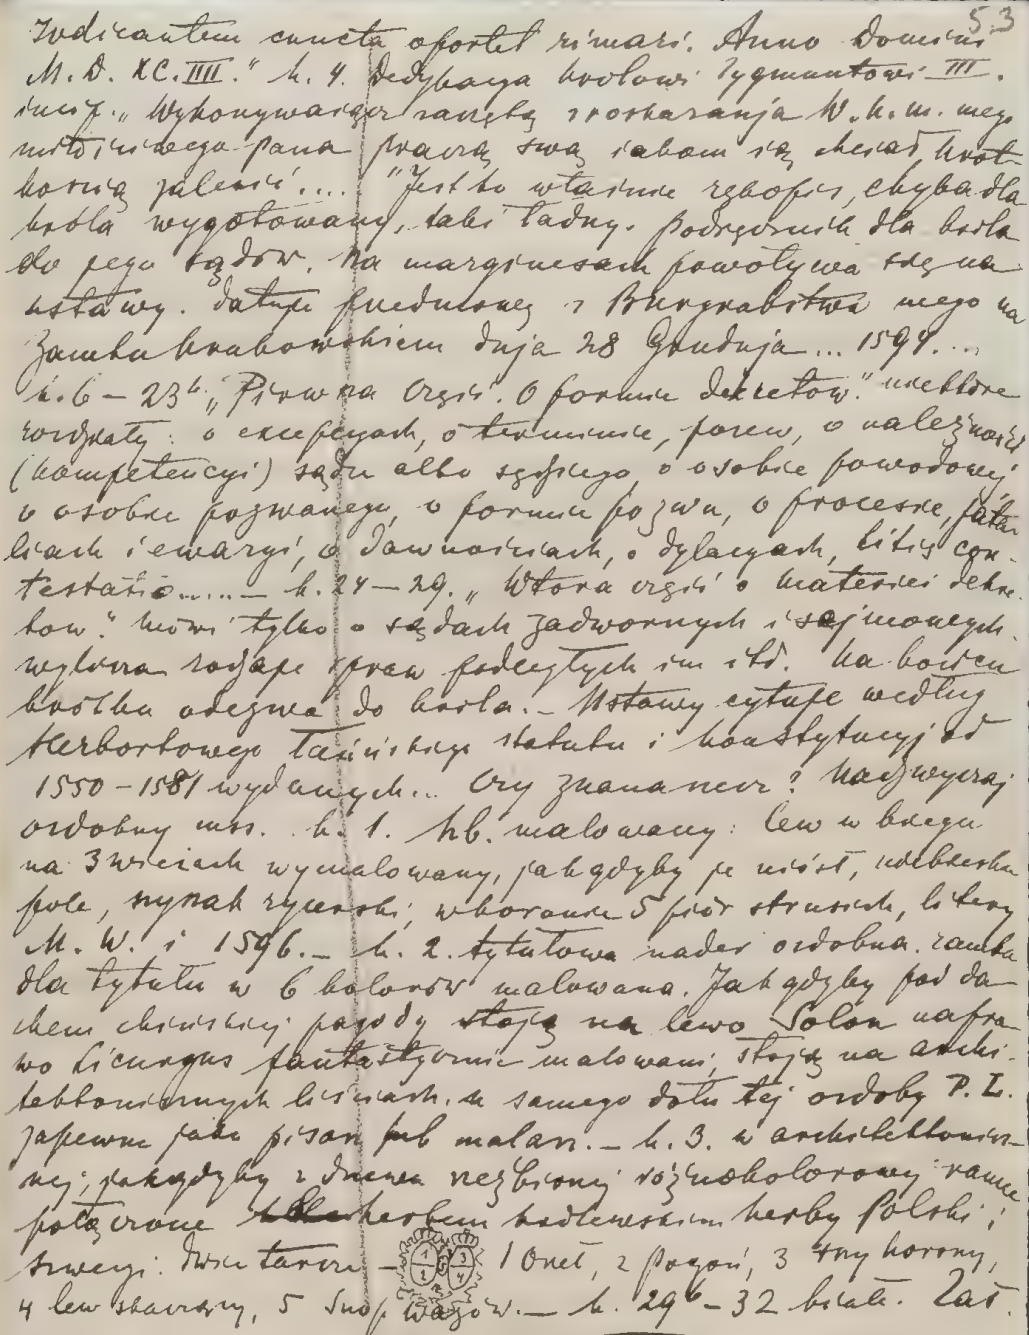 53
Iudicantem cuncta oportet rimari. Anno Domini
M. D. XC. IIII." k. 4. Dedykacya królowi Zygmuntowi III.
incip. „Wykonywaiącz z rozkazanja W. k. m. mego
miłościwego Pana praczą swą iakom się chciał krot-
koscią zalecić.... "Jest to właśnie rękopis, chyba dla
króla wygotowany, taki ładny. Podręcznik dla króla
do jego sądów. Na marginesach powoływa się na
ustawy. Datuje z Burgrabstwa mego na
Zamku krakowskiem dnja 28 Grudnja ... 1594....
k. 6 – 23b „Pirwsza część. O formie dekretow." niektóre
rozdziały: o excepcyach, o terminie, pozew, o należności
(kompetencyi) sądu albo sędziego, o osobie powodowej
o osobie pozwanego, o formie pozwu, o procesie, fata-
liach i ewazyi, o dawnościach, o dylacyach, litis con-
testatio..... – k. 24 – 29. „Wtora część o materiei dekre-
tow." Mówi tylko o sądach zadwornych i sejmowych
wylicza rodzaje spraw podległych im itd. Na końcu
krótka odezwa do króla. – Ustawy cytuje według
Herbortowego łacińskiego statutu i konstytucyj od
1550 – 1581 wydanych... Czy znana rzecz? Nadzwyczaj
ozdobny mss. k. 1. hb. malowany: lew w biegu
na 3 wieżach wymalowany, jakgdyby je niósł, niebieskie
pole, szyszak rycerski, w koronie 5 piór strusich, litery
M. W. i 1596. – k. 2. tytułowa nader ozdobna. ramka
dla tytułu w 6 kolorów malowana. Jakgdyby pod da-
chem chińskiej pagody stoją na lewo Solon na pra-
wo Licurgus fantastycznie malowani, stoją na archi-
tektonicznych liściach. U samego dołu tej ozdoby P. L.
zapewne jako pisarz lub malarz. – k. 3. w architektonicz-
nej, jakgdyby z drzewa rzeźbionej różnokolorowej ramce
połączone herbem herby Polski i
Szwecyi. Dwie tarcze – 1 Orzeł, 2 Pogoń, 3 trzy korony,
4 lew skaczący, 5 Snop wazów. – k. 29b – 32 białe. Zaś.